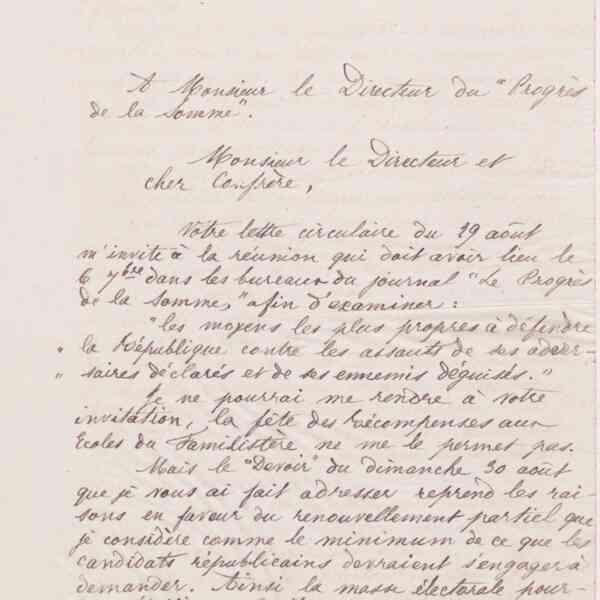 A Monsieur le Directeur du "Progrès
de la Somme".
Monsieur le Directeur et
cher Confrère,
Votre lettre circulaire du 29 août
m'invite à la réunion qui doit avoir lieu le
6 7bre dans les bureaux du journal "Le Progrès
de la Somme," afin d'examiner :
"les moyens les plus propres à défendre
" la République contre les assauts de ses adver-
" saires déclarés et de ses ennemis déguisés."
Je ne pourrai me rendre à votre
invitation, la fête des Récompenses aux
Ecoles du Familistère ne me le permet pas.
Mais le "Devoir" du dimanche 30 août
que je vous ai fait adresser reprend les rai-
sons en faveur du renouvellement partiel que
je considère comme le minimum de ce que les
candidats républicains devraient s'engager à
demander. Ainsi la masse électorale pour-